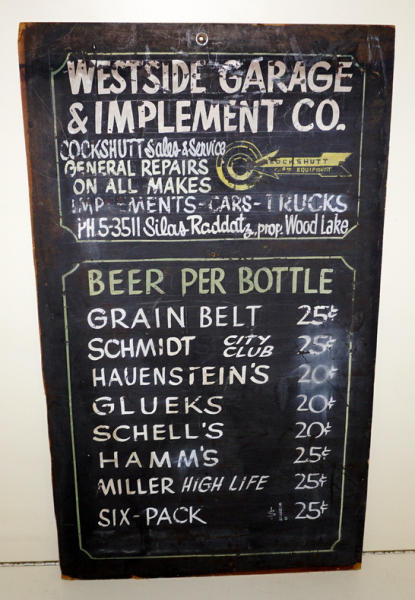 WESTSIDE GARAGE
& IMPLEMENT CO.
COCKSHUTT Sales & Service
GENERAL REPAIRS
ON ALL MAKES
COCKSHUTT
FARM EQUIPMENT
IMPLEMENTS-CARS-TRUCKS
PH 5-3511 Silas Raddatz, prop. Wood Lake
BEER PER BOTTLE
GRAIN BELT 25¢
SCHMIDT CITY CLUB 25¢
HAUENSTEIN'S 20¢
GLUEKS 20¢
SCHELL'S 20¢
HAMM'S 25¢
MILLER HIGH LIFE 25¢
SIX-PACK $1. 25¢